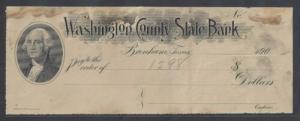 No.
Washington County State Bank
Brenham, Texas, 190
pay to the
order of 1298 $
Dollars
Cashier